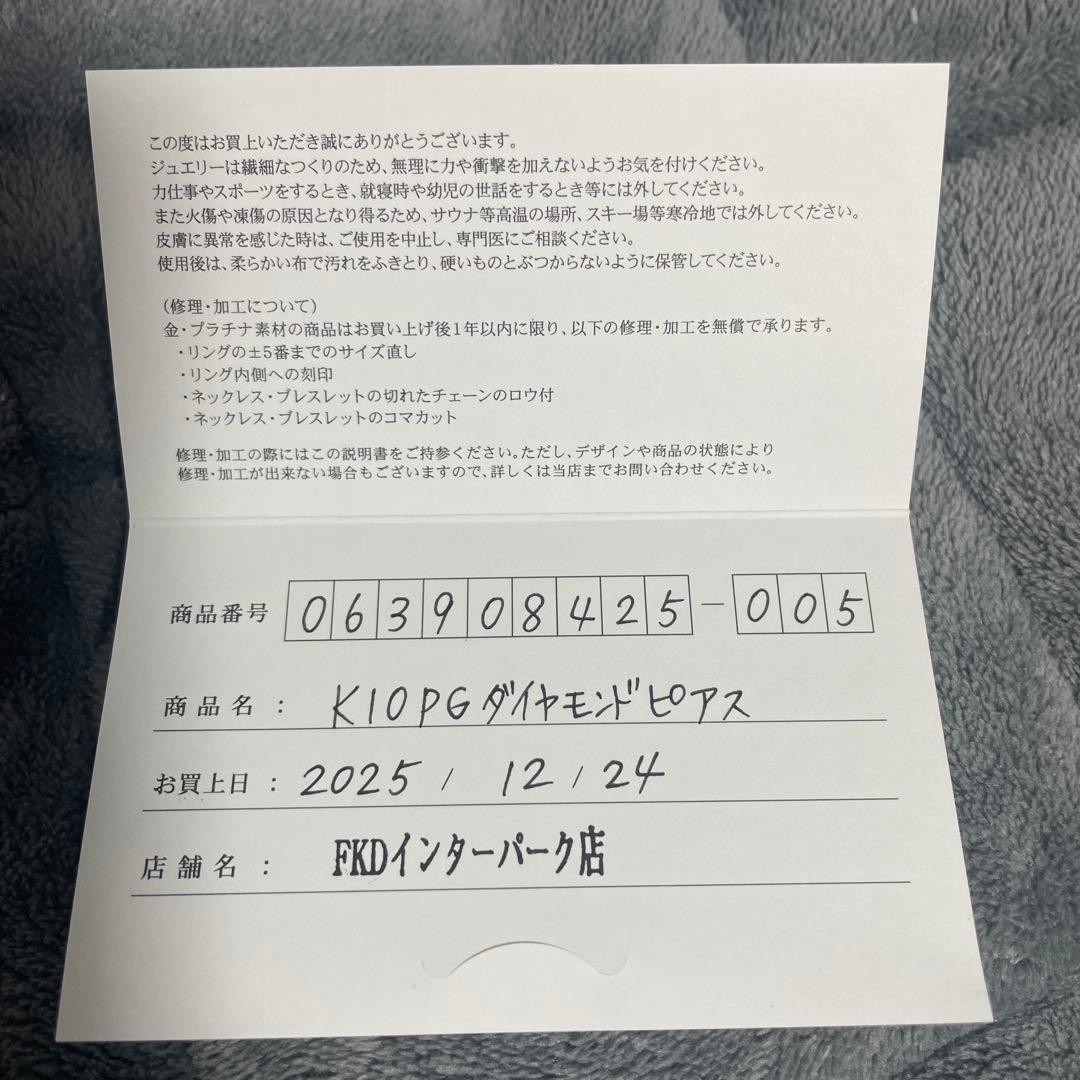 この度はお買上いただき誠にありがとうございます。
ジュエリーは繊細なつくりのため、無理に力や衝撃を加えないようお気を付けください。
力仕事やスポーツをするとき、就寝時や幼児の世話をするとき等には外してください。
また火傷や凍傷の原因となり得るため、サウナ等高温の場所、スキー場等寒冷地では外してください。
皮膚に異常を感じた時は、ご使用を中止し、専門医にご相談ください。
使用後は、柔らかい布で汚れをふきとり、硬いものとぶつからないように保管してください。
(修理・加工について)
金・プラチナ素材の商品はお買い上げ後1年以内に限り、以下の修理・加工を無償で承ります。
・リングの±5番までのサイズ直し
・リング内側への刻印
・ネックレス・ブレスレットの切れたチェーンのロウ付
・ネックレス・ブレスレットのコマカット
修理・加工の際にはこの説明書をご持参ください。ただし、デザインや商品の状態により
修理・加工が出来ない場合もございますので、詳しくは当店までお問い合わせください。
商品番号 063908425-005
商品名 : K10PGダイヤモンドピアス
お買上日 : 2025 / 12 / 24
店舗名 : FKDインターパーク店